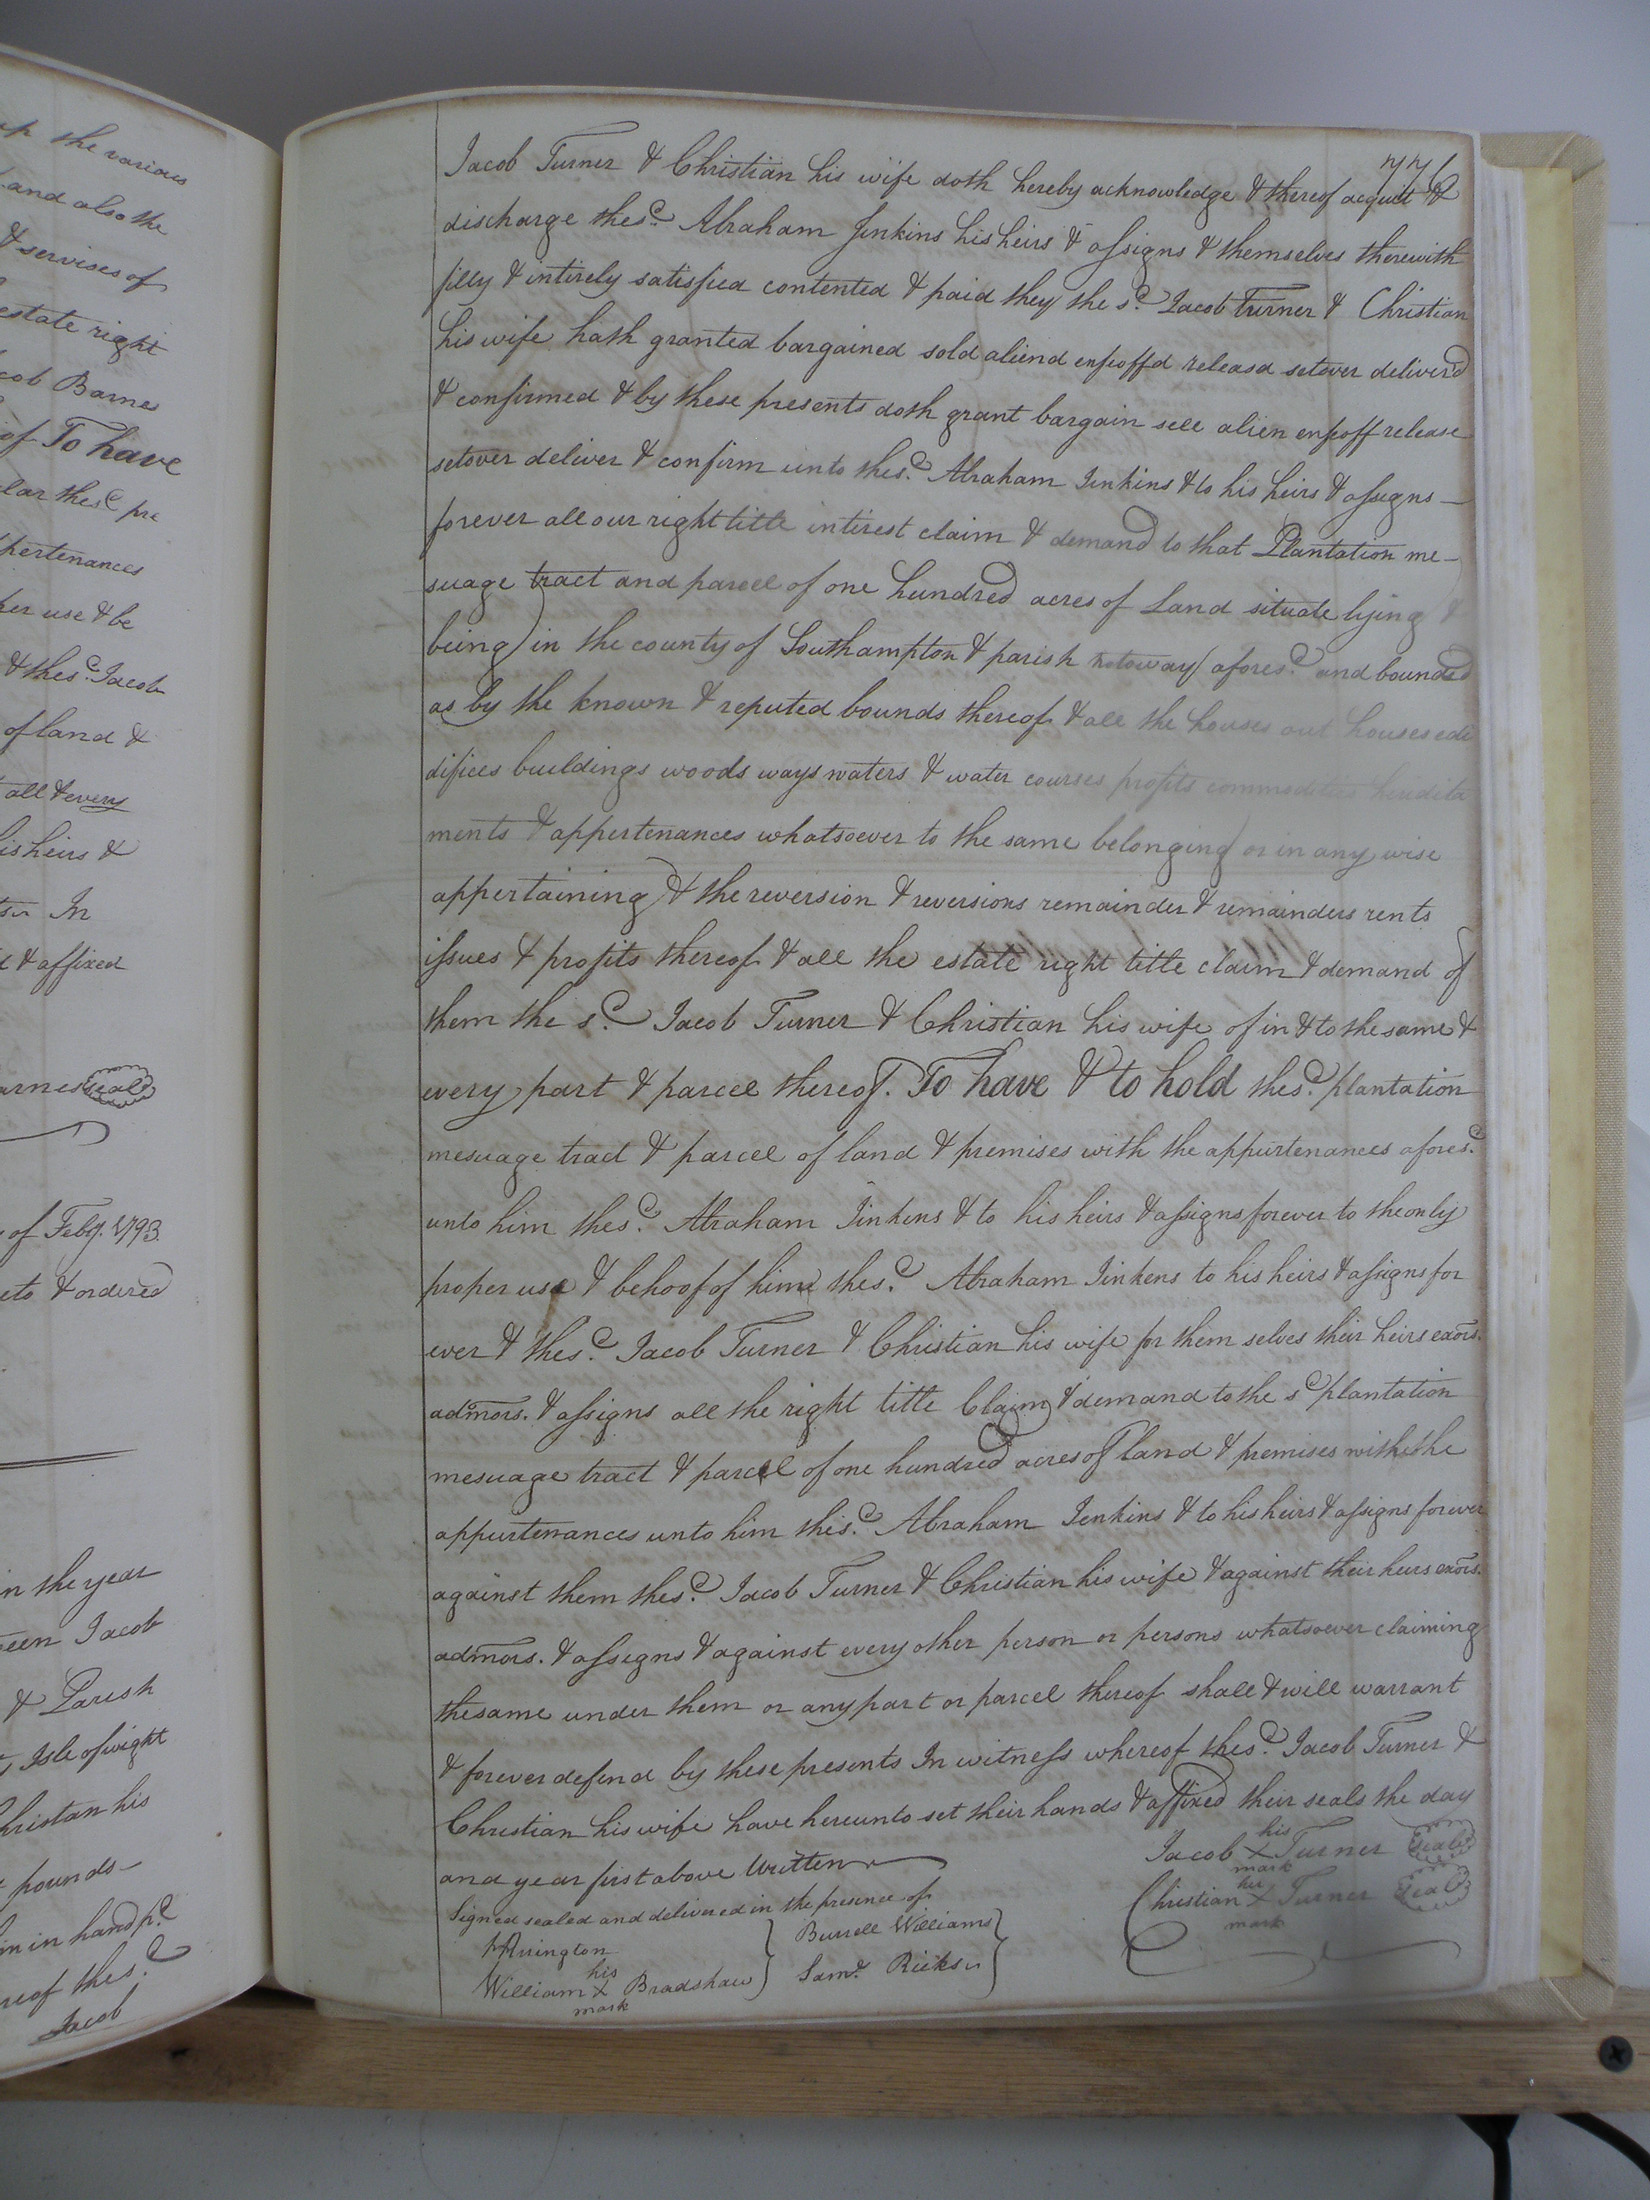 up the various
and also the
& servises of
estate right
cob Barnes
of To have
lar the sd pre
pertenances
her use & be
& the sd. Jacob
of land &
all & every
is heirs &
In
& affixed
arnes seal
of Feby. 1793.
eto & ordered
in the year
een Jacob
& Parish
Isle of wight
hristan his
pounds
in hand pd
reof the sd.
Jacob
Jacob Turner & Christian his wife doth hereby acknowledge & thereof acquit &
discharge the sd. Abraham Jenkins his heirs & assigns & themselves therewith
fully & intirely satisfied contented & paid they the sd. Jacob Turner & Christian
his wife hath granted bargained sold aliend enfeoffd releasd setover deliverd
& confirmed & by these presents doth grant bargain sell alien enfeoff release
setover deliver & confirm unto the sd. Abraham Jenkins & to his heirs & assigns
forever all our right title interest claim & demand to that Plantation me-
suage tract and parcel of one hundred acres of Land situate lying &
being in the county of Southampton & parish notoway afores.d and bounded
as by the known & reputed bounds thereof & all the houses out houses edi
difices buildings woods ways waters & water courses profits commodities heredita
ments & appertenances whatsoever to the same belonging or in any wise
appertaining & the reversion & reversions remainder & remainders rents
issues & profits thereof & all the estate right title claim & demand of
them the sd. Jacob Turner & Christian his wife of in & to the same &
every part & parcel thereof. To have & to hold the sd. plantation
mesuage tract & parcel of land & premises with the appurtenances afores.d
unto him the sd. Abraham Jinkens & to his heirs & assigns forever to the only
proper use & behoof of him the sd. Abraham Jinkens to his heirs & assigns for
ever & the sd. Jacob Turner & Christian his wife for them selves their heirs exors.
admors. & assigns all the right title Claim & demand to the sd plantation
mesuage tract & parcel of one hundred acres of land & premises with the
appurtenances unto him the sd. Abraham Jenkins & to his heirs & assigns forever
against them the sd. Jacob Turner & Christian his wife & against their heirs exors.
admors. & assigns & against every other person or persons whatsoever claiming
the same under them or any part or parcel thereof shall & will warrant
& forever defend by these presents In witness whereof the sd. Jacob Turner &
Christian his wife have hereunto set their hands & affixed their seals the day
and year first above Written
his
Jacob X Turner seal
mark
her
Christian X Turner seal
mark
Signed sealed and delivered in the presence of
Arrington
Burrell Williams
his
William X Bradshaw
mark
Saml. Ricks